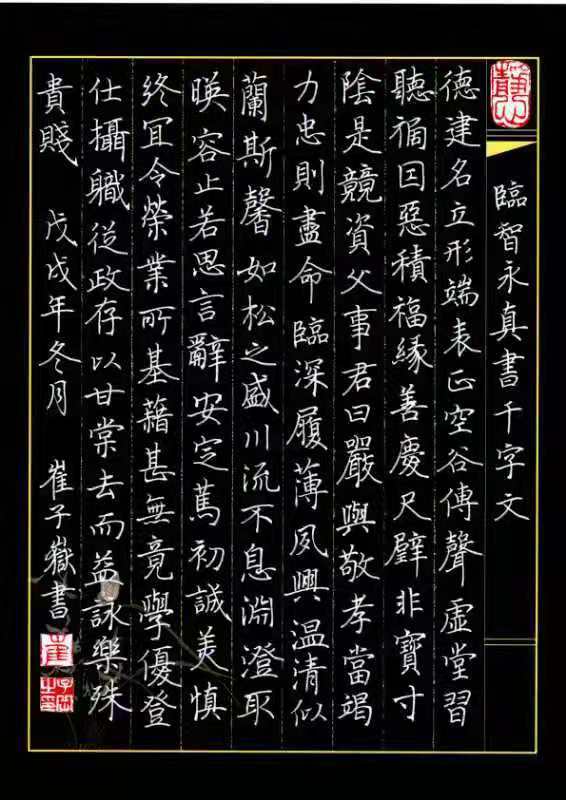 臨智永真書千字文
德建名立形端表正空谷傳聲虛堂習
聽禍因惡積福緣善慶尺璧非寶寸
陰是競資父事君曰嚴與敬孝當竭
力忠則盡命臨深履薄夙興温清似
蘭斯馨如松之盛川流不息淵澄取
暎容止若思言辭安定篤初誠美慎
終宜令榮業所基藉甚無竟學優登
仕攝職從政存以甘棠去而益詠樂殊
貴賤 戊戌年冬月 崔子嶽書
崔